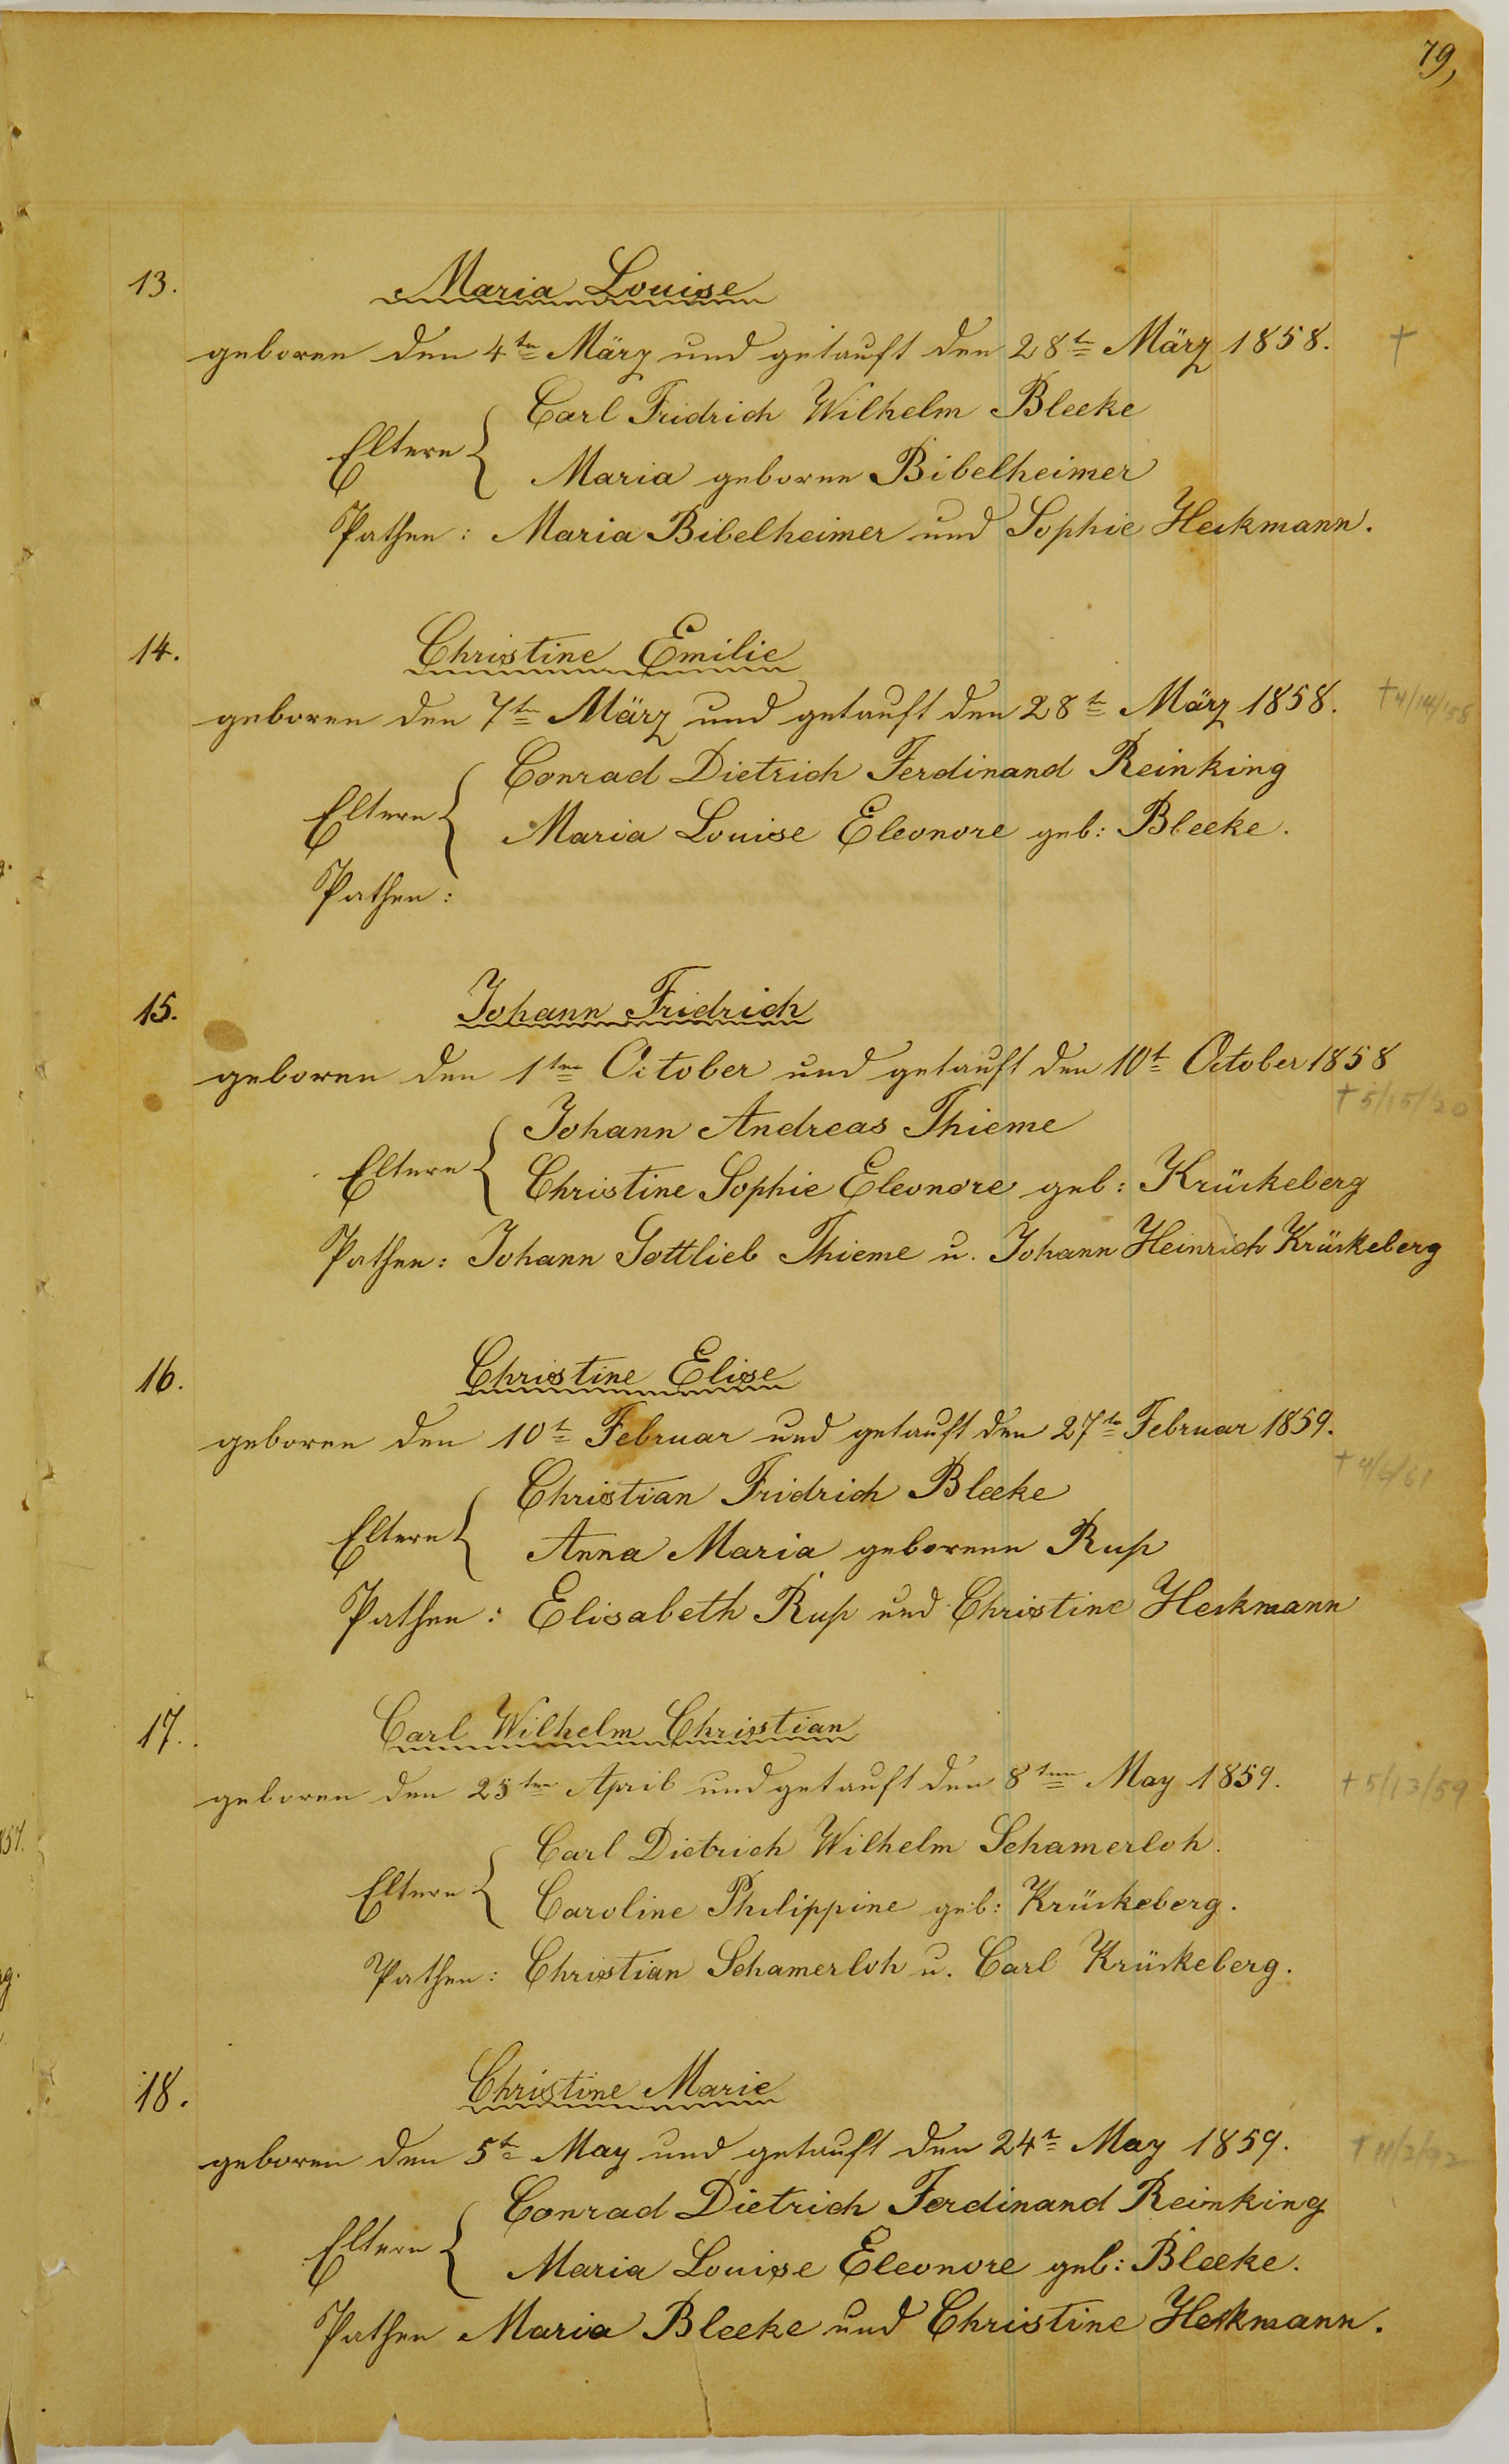 79,
13. Maria Louise
geboren den 4ten März und getauft den 28t März 1858. †
Carl Fridrich Wilhelm Bleeke
Eltern {
Maria geborne Bibelheimer
Pathen: Maria Bibelheimer und Sophie Heckmann.
14. Christine Emilie
geboren den 7ten März und getauft den 28t März 1858. †4/14/58
Conrad Dietrich Ferdinand Reinking
Eltern {
Maria Louise Eleonore geb: Bleeke.
Pathen:
15. Johann Fridrich
geboren den 1ten October und getauft den 10t October 1858
†5/15/20
Johann Andreas Thieme
Eltern {
Christine Sophie Eleonore geb: Krückeberg
Pathen: Johann Gottlieb Thieme u. Johann Heinrich Krückeberg
16. Christine Elise
geboren den 10t Februar und getauft den 27t Februar 1859.
†
Christian Fridrich Bleeke
Eltern {
Anna Maria geborene Rup
Pathen: Elisabeth Rup und Christine Heckmann
17. Carl Wilhelm Christian
geboren den 25ten April und getauft den 8ten May 1859. †5/13/59
Carl Dietrich Wilhelm Schamerloh.
Eltern {
Caroline Philippine geb: Krückeberg.
Pathen: Christian Schamerloh u. Carl Krückeberg.
18. Christine Marie
geboren den 5t May und getauft den 24t May 1859. †
Conrad Dietrich Ferdinand Reinking
Eltern {
Maria Louise Eleonore geb: Bleeke.
Pathen Maria Bleeke und Christine Heckmann.